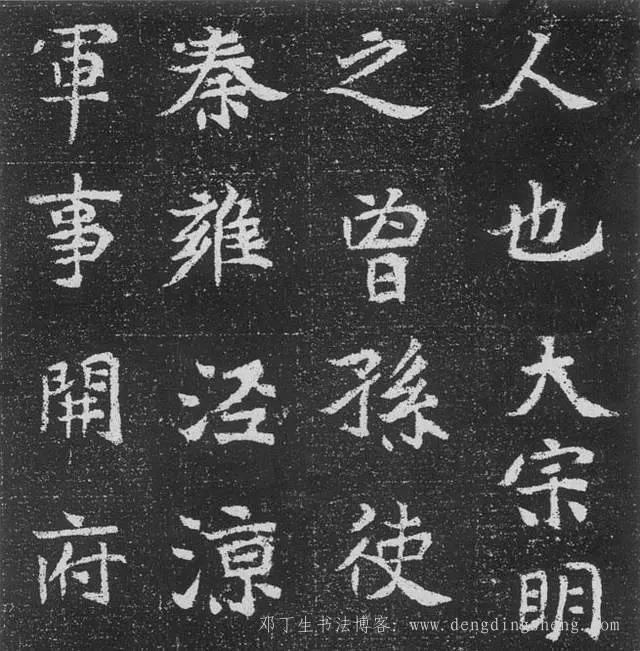 人也大宗明
之曾孫使
秦雍泾涼
軍事開府
邓丁生书法博客: www.dengdingsheng.com